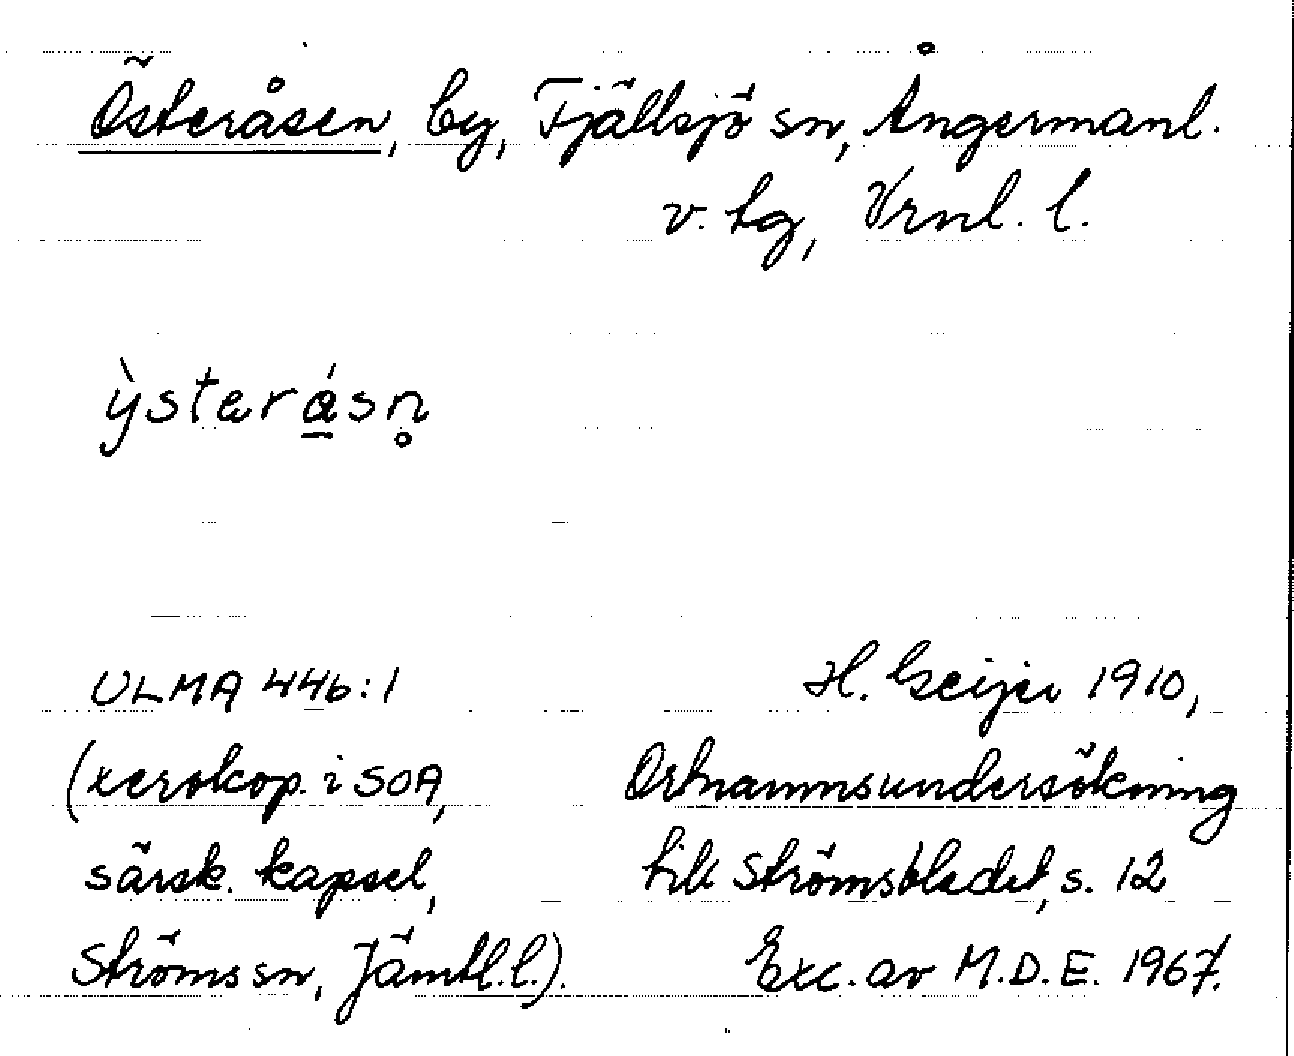 Österåsen, by, Fjällsjö sn, Ångermanl.
v. tg, Vrnl. l.
ỳsterásn̥
ULMA 446:1
(xerokop. i SOA,
särsk. kapsel,
Ströms sn, Jämtl. l.).
H. Geijer 1910,
Ortnamnsundersökning
till Strömsbladet, s. 12
Exc. av M.D.E. 1967.